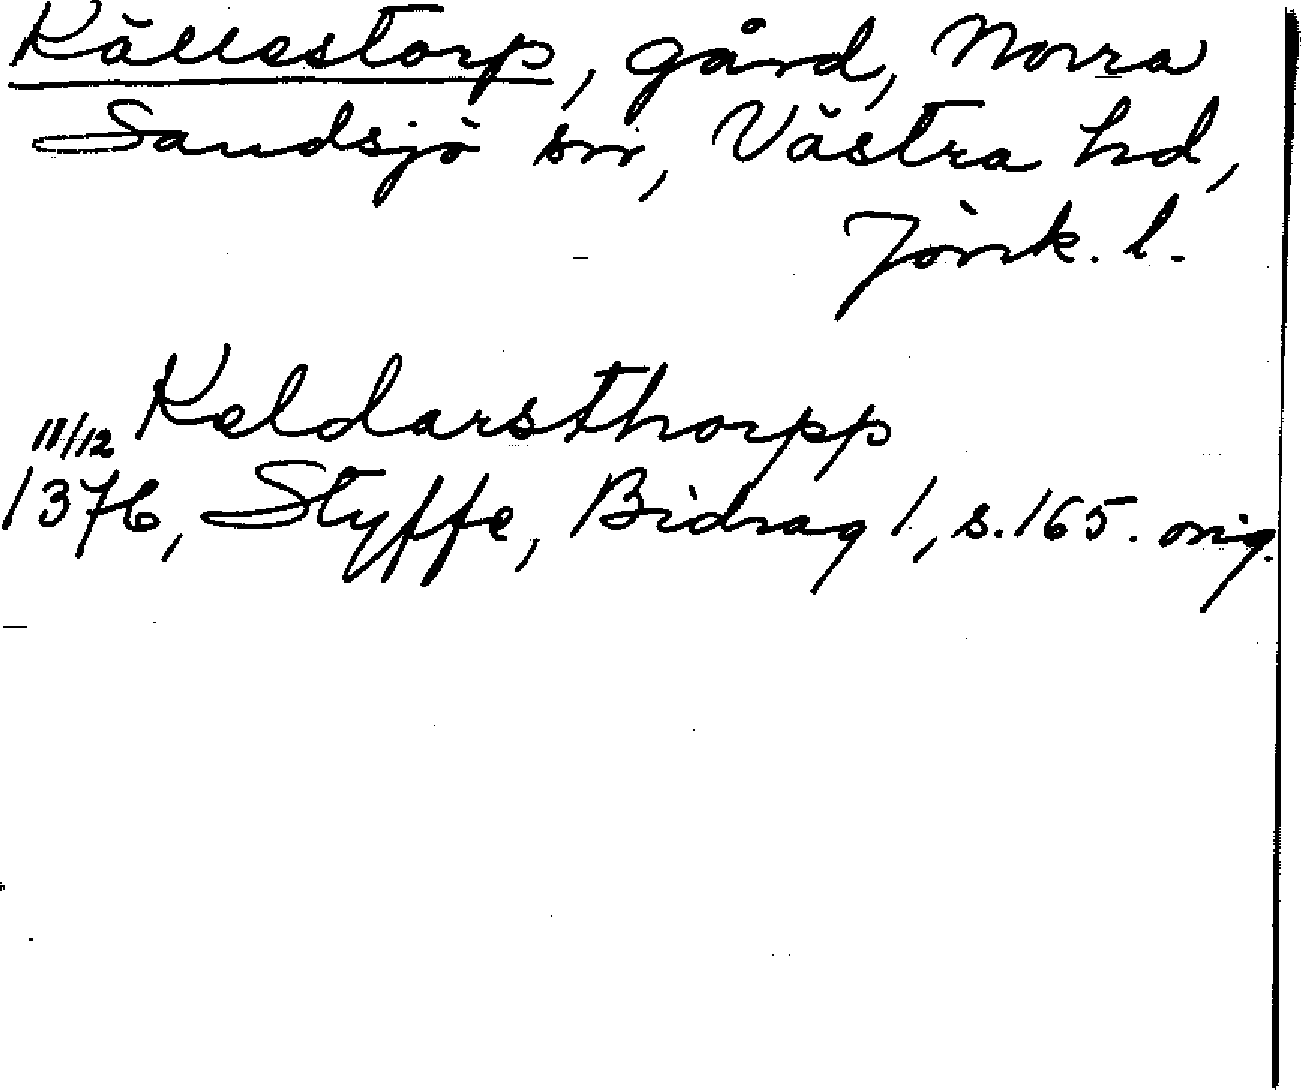 Källestorp, gård, Norra
Sandsjö sn, Västra hd,
Jönk. l.
Keldarsthorpp
11/12
1376, Styffe, Bidrag 1, s. 165. orig.